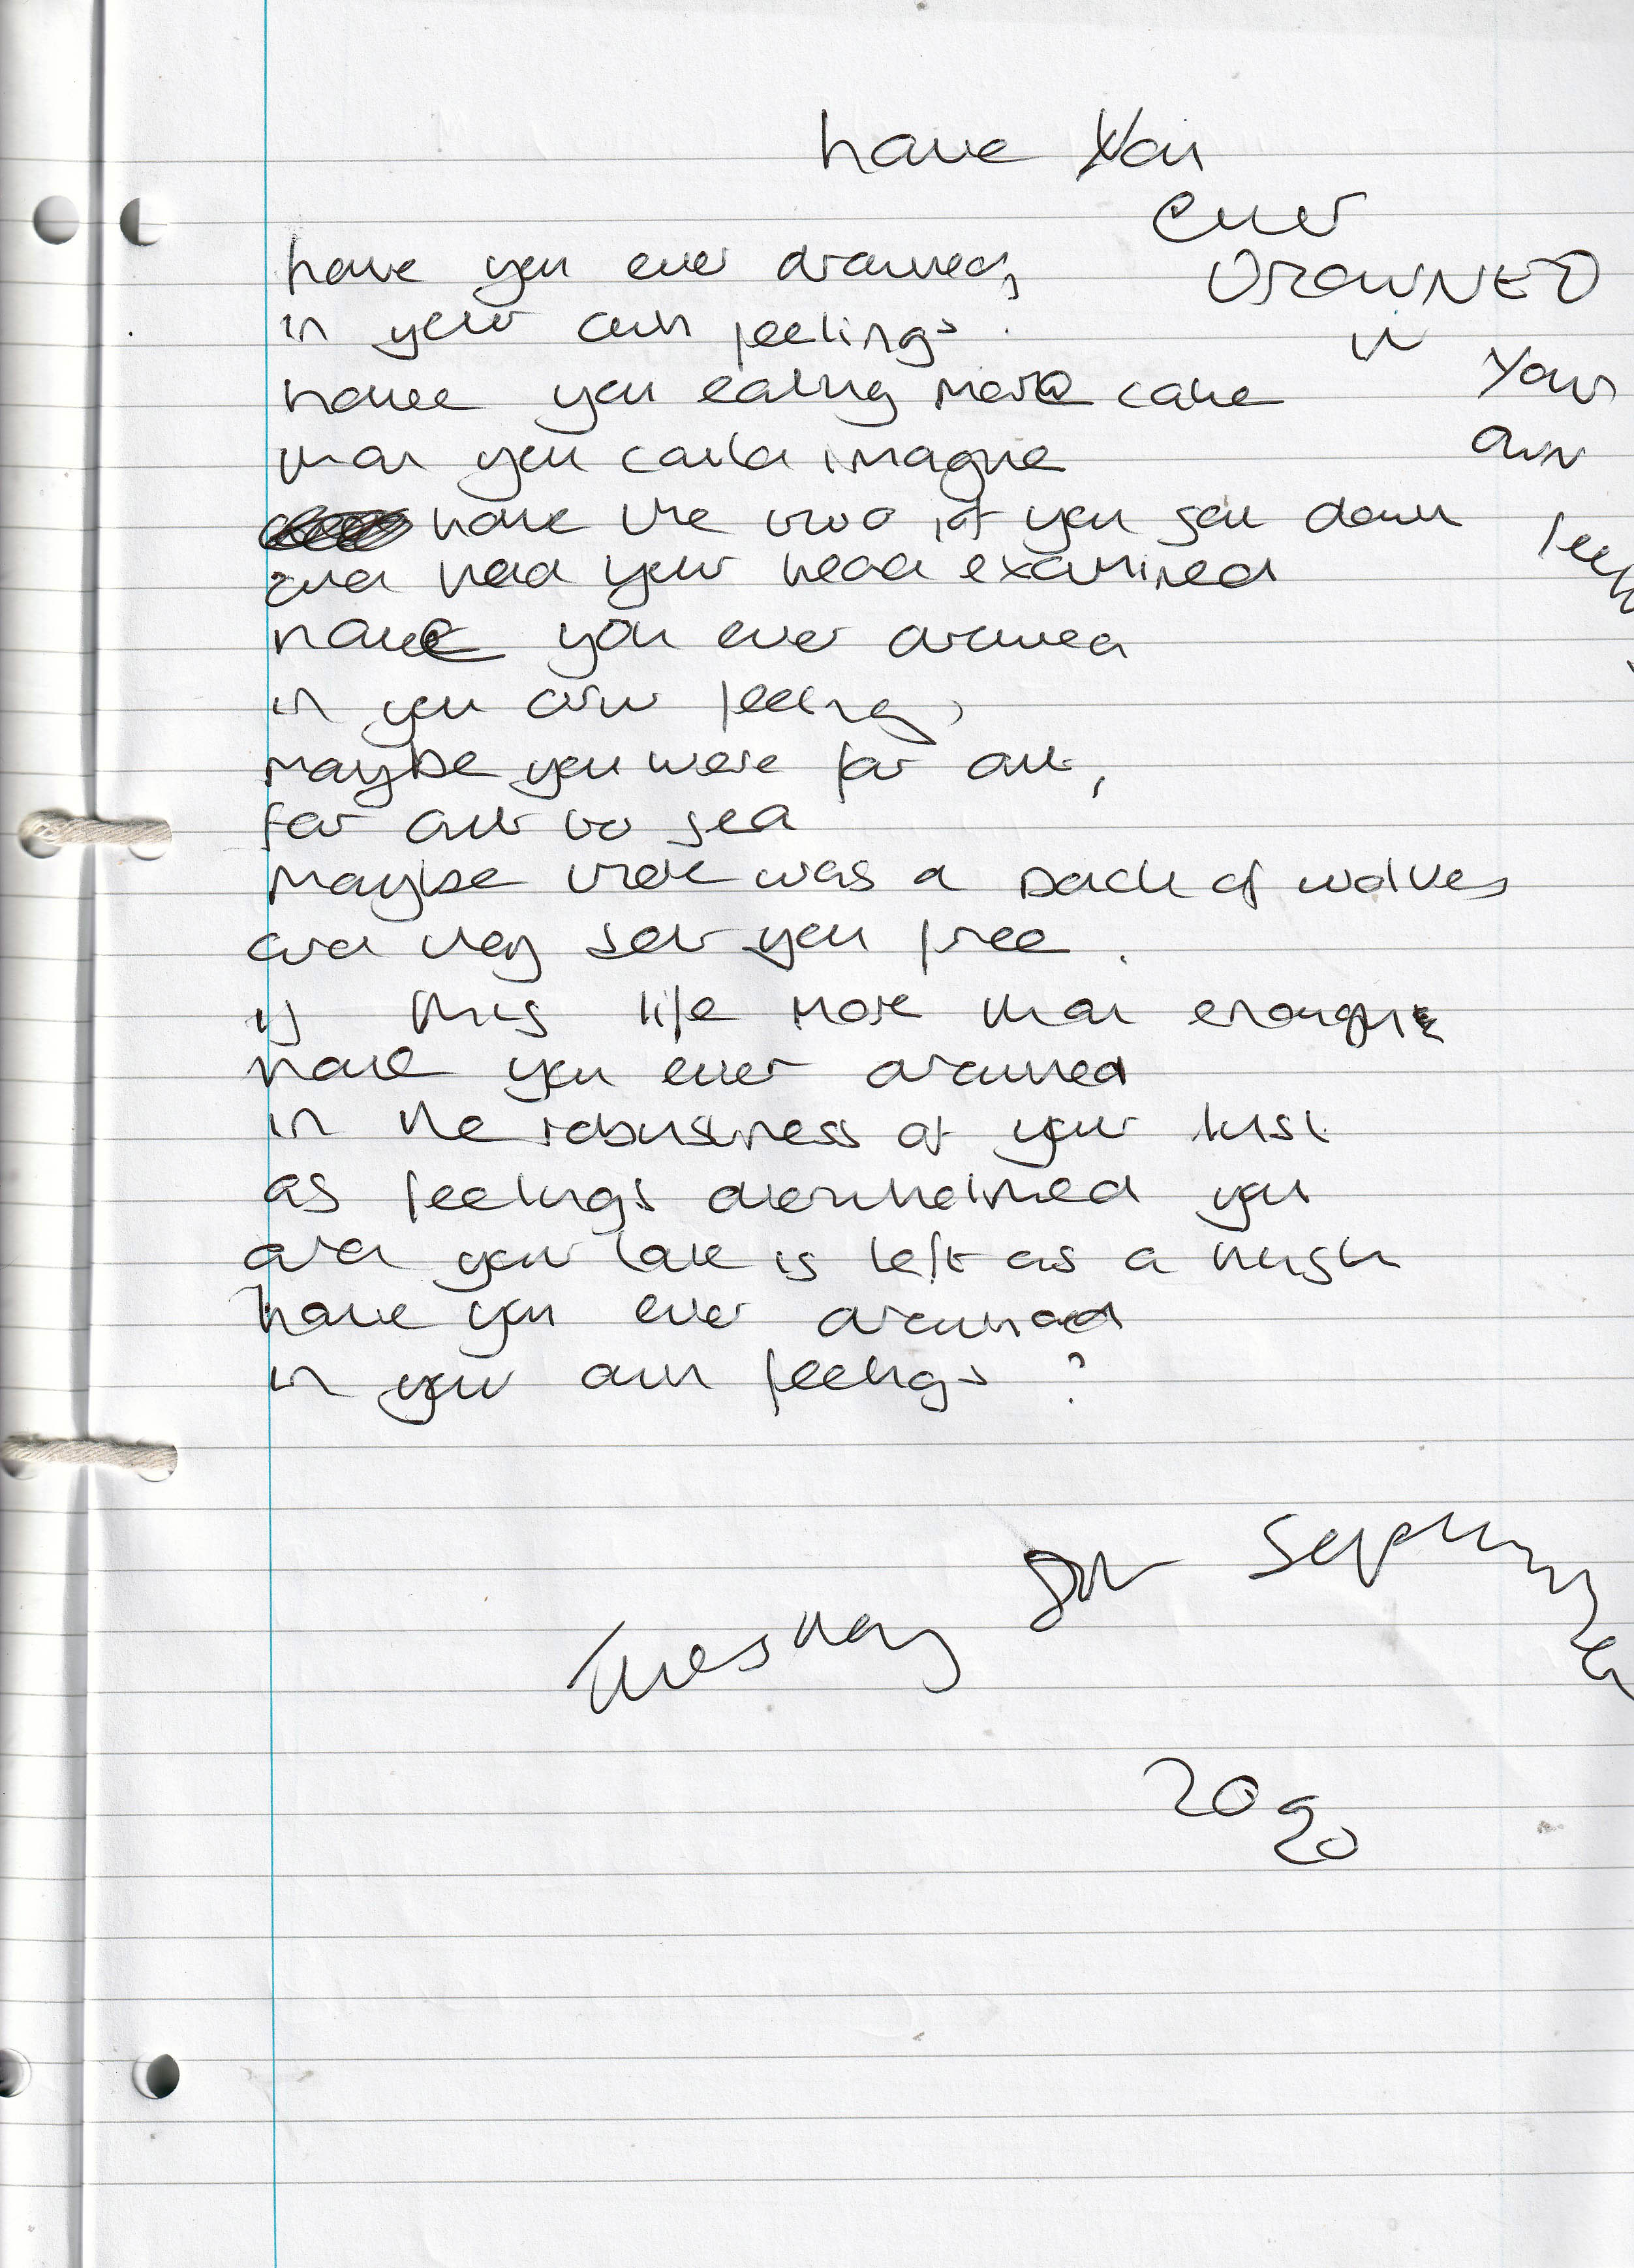 have You
ever
DROWNED
in
Your
own
feel
have you ever drowned,
in your own feelings.
have you eating more cake
than you could imagine
have the two of you sat down
and had your head examined
have you ever drowned
in you own feeling,
maybe you were far out,
far out to sea
maybe there was a pack of wolves
and they set you free.
is this life more than enough
have you ever drowned
in the robustness of your lust
as feelings overwhelmed you
and your love is left as a hush
have you ever drowned
in your own feelings?
Tuesday 8th September
2020